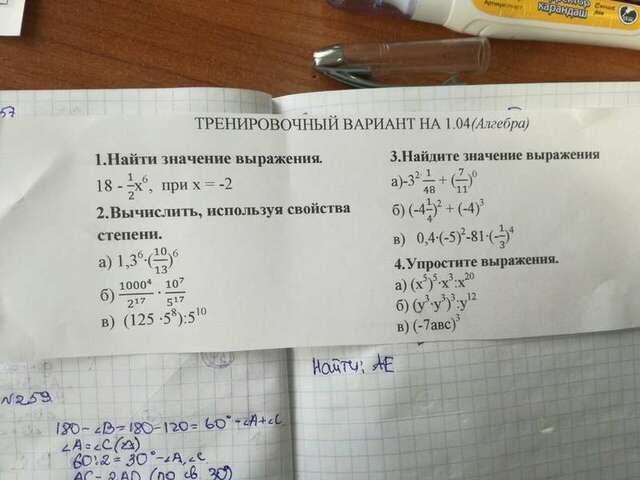 карандаш
57
ТРЕНИРОВОЧНЫЙ ВАРИАНТ НА 1.04(Алгебра)
1.Найти значение выражения.
18 - 1/2x⁶, при x = -2
2.Вычислить, используя свойства
степени.
а) 1,3⁶·(10/13)⁶
б) 1000⁴/2¹⁷ · 10⁷/5¹⁷
в) (125 ·5⁸):5¹⁰
3.Найдите значение выражения
а)-3²·1/48 + (7/11)⁰
б) (-4 1/4)² + (-4)³
в) 0,4·(-5)²-81·(-1/3)⁴
4.Упростите выражения.
а) (x⁵)⁵·x³:x²⁰
б) (y³·y³)³:y¹²
в) (-7авс)³
Найти: AE
N259
180-∠B=180-120=60°-∠A+∠C
∠A=∠C(△)
60:2=30°-∠A,∠C
AC=2AD (по св. 30°)